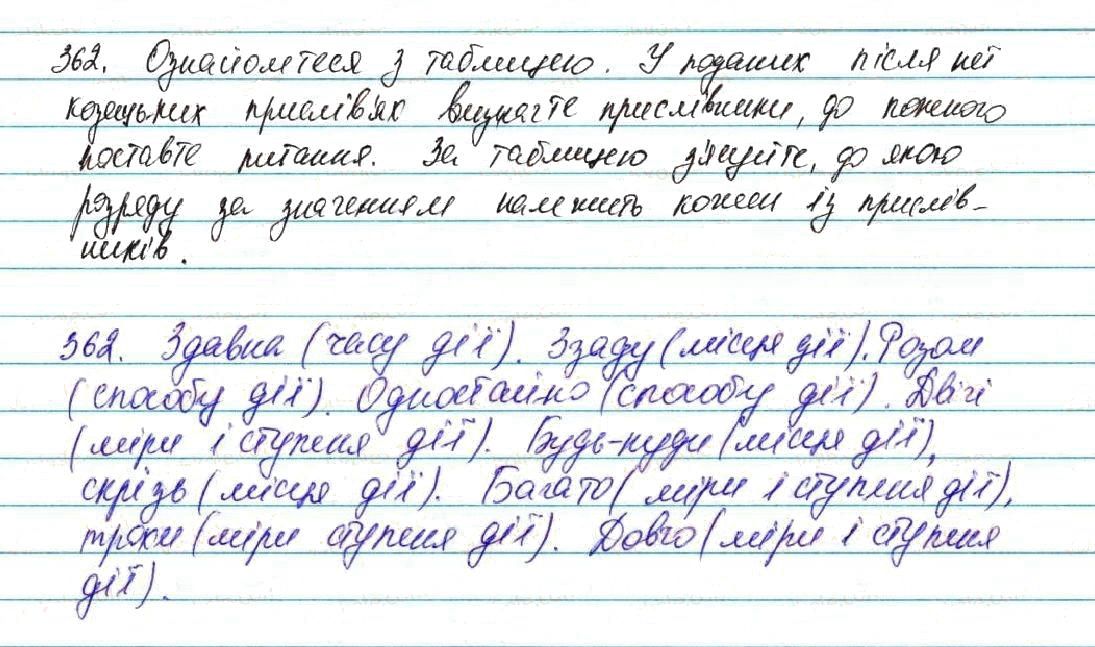 362. Ознайомтеся з таблицею. У поданих після неї
козацьких прислів'ях визначте прислівники, до кожного
поставте питання. За таблицею з'ясуйте, до якого
розряду за значенням належить кожен із прислів-
ників.
362. Здавна (часу дії). Ззаду (місця дії). Разом
(способу дії). Одностайно (способу дії). Двічі
(міри і ступеня дії). Будь-куди (місця дії),
скрізь (місця дії). Багато (міри і ступеня дії),
трохи (міри ступеня дії). Довго (міри і ступеня
дії).